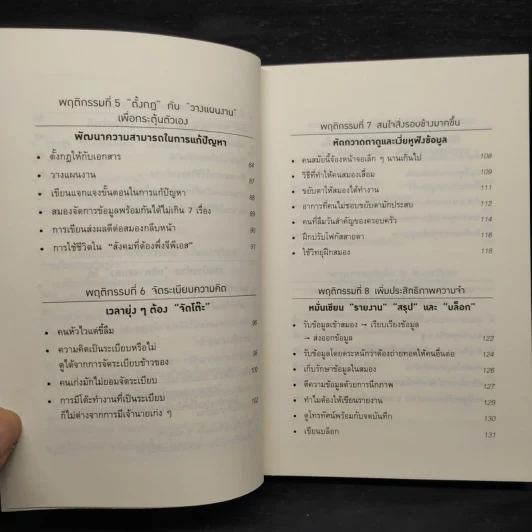 พฤติกรรมที่ 5 "ตั้งกฎ" กับ "วางแผนงาน"
เพื่อกระตุ้นตัวเอง
พัฒนาความสามารถในการแก้ปัญหา
• ตั้งกฎให้กับเอกสาร 84
• วางแผนงาน 87
• เขียนแจกแจงขั้นตอนในการแก้ปัญหา 88
• สมองจัดการข้อมูลพร้อมกันได้ไม่เกิน 7 เรื่อง 89
• การเขียนส่งผลดีต่อสมองกลีบหน้า 90
• การใช้ชีวิตใน "สังคมที่ต้องพึ่งจีพีเอส" 91
พฤติกรรมที่ 6 จัดระเบียบความคิด
เวลายุ่ง ๆ ต้อง "จัดโต๊ะ"
• คนหัวไวแต่ขี้ลืม 96
• ความคิดเป็นระเบียบหรือไม่
ดูได้จากการจัดระเบียบข้าวของ 98
• คนเก่งมักไม่ยอมจัดระเบียบ 100
• การมีโต๊ะทำงานที่เป็นระเบียบ 102
ก็ไม่ต่างจากการมีเจ้านายเก่ง ๆ
พฤติกรรมที่ 7 สนใจสิ่งรอบข้างมากขึ้น
หัดกวาดตาดูและเงี่ยหูฟังข้อมูล
• คนสมัยนี้จ้องหน้าจอเล็ก ๆ นานเกินไป 108
• วิธีที่ทำให้คนสมองเสื่อม 109
• ขยับตาให้สมองได้ทำงาน 111
• อาการที่คนไม่ชอบขยับตามักประสบ 112
• คนที่ลืมวันสำคัญของครอบครัว 114
• ฝึกปรับโฟกัสสายตา 116
• ใช้วิทยุฝึกสมอง 118
พฤติกรรมที่ 8 เพิ่มประสิทธิภาพความจำ
หมั่นเขียน "รายงาน" "สรุป" และ "บล็อก"
• รับข้อมูลเข้าสมอง → เรียบเรียงข้อมูล
→ ส่งออกข้อมูล 122
• รับข้อมูลโดยตระหนักว่าต้องถ่ายทอดให้คนอื่นต่อ 124
• เก็บรักษาข้อมูลในสมอง 126
• ตีความข้อมูลด้วยการนึกภาพ 127
• ทำไมต้องให้เขียนรายงาน 129
• ดูโทรทัศน์พร้อมกับจดบันทึก 130
• เขียนบล็อก 131